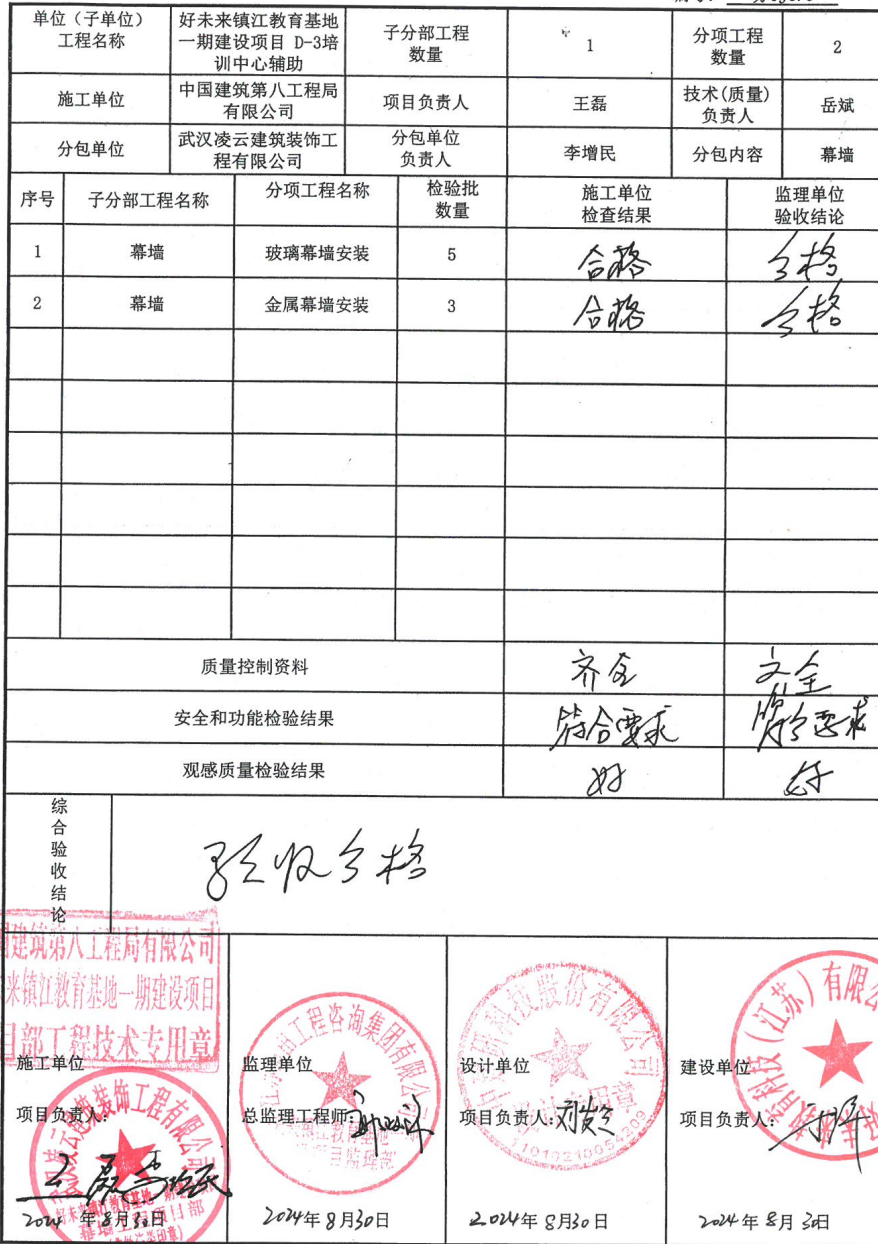 单位（子单位）
工程名称
好未来镇江教育基地
一期建设项目 D-3培
训中心辅助
子分部工程
数量
1
分项工程
数量
2
施工单位
中国建筑第八工程局
有限公司
项目负责人
王磊
技术(质量)
负责人
岳斌
分包单位
武汉凌云建筑装饰工
程有限公司
分包单位
负责人
李增民
分包内容
幕墙
序号
子分部工程名称
分项工程名称
检验批
数量
施工单位
检查结果
监理单位
验收结论
1
幕墙
玻璃幕墙安装
5
合格
合格
2
幕墙
金属幕墙安装
3
合格
合格
质量控制资料
齐全
齐全
安全和功能检验结果
符合要求
符合要求
观感质量检验结果
好
好
综合验收结论
验收合格
建筑第八工程局有限公司
来镇江教育基地一期建设项目
目部工程技术专用章
施工单位
项目负责人:
王磊 李增民
2024 年 8月30日
监理单位
总监理工程师:
工程咨询集团有限公司
2024年 8月30日
设计单位
项目负责人:
科技股份有限公司
2024年 8月30日
建设单位
项目负责人:
科技（江苏）有限公
2024年 8月 30日